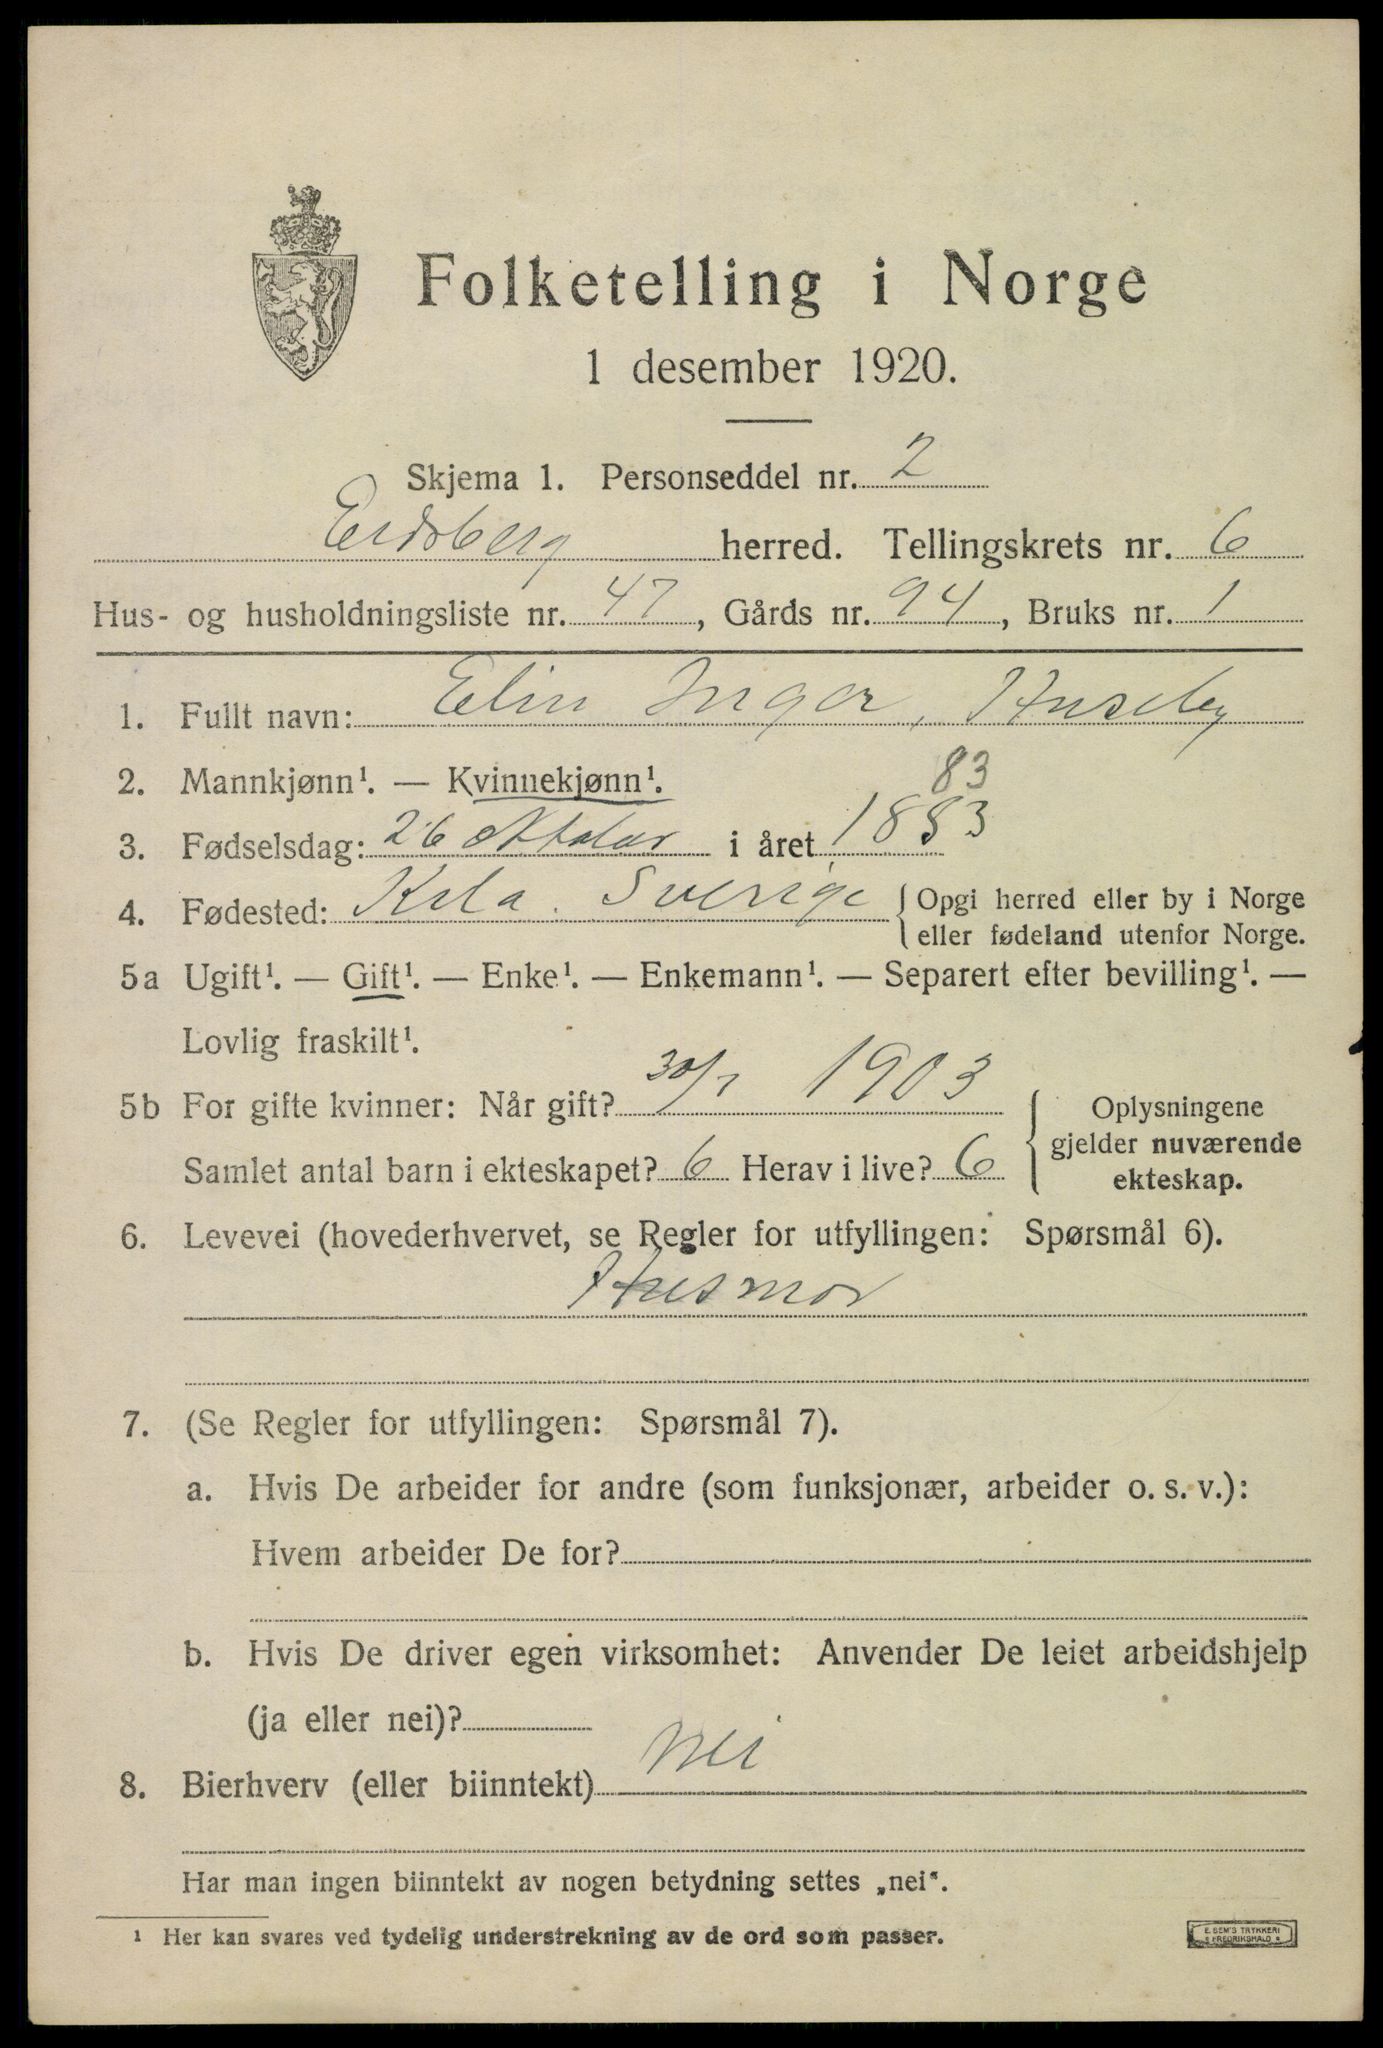 Folketelling i Norge
1 desember 1920.
Skjema 1. Personseddel nr. 2
Eidsberg herred. Tellingskrets nr. 6
Hus- og husholdningsliste nr. 47, Gårds nr. 94, Bruks nr. 1
1. Fullt navn: Elin Inger, Huseby
2. Mannkjønn¹. — Kvinnekjønn¹.
83
3. Fødselsdag: 26 oktober i året 1883
4. Fødested: Kila. Sverige { Opgi herred eller by i Norge
eller fødeland utenfor Norge.
5a Ugift¹. — Gift¹. — Enke¹. — Enkemann¹. — Separert efter bevilling¹. —
Lovlig fraskilt¹.
5b For gifte kvinner: Når gift? 30/7 1903
Samlet antal barn i ekteskapet? 6 Herav i live? 6
{ Oplysningene
gjelder nuværende
ekteskap.
6. Levevei (hovederhvervet, se Regler for utfyllingen: Spørsmål 6).
Husmor
7. (Se Regler for utfyllingen: Spørsmål 7).
a. Hvis De arbeider for andre (som funksjonær, arbeider o. s. v.):
Hvem arbeider De for?
b. Hvis De driver egen virksomhet: Anvender De leiet arbeidshjelp
(ja eller nei)?
8. Bierhverv (eller biinntekt) Nei
Har man ingen biinntekt av nogen betydning settes „nei“.
¹ Her kan svares ved tydelig understrekning av de ord som passer.
E. SEM'S TRYKKERI
FREDRIKSHALD